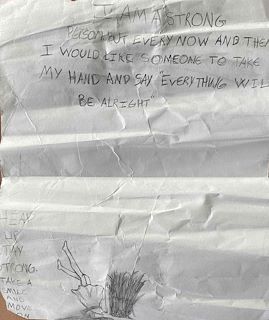 I AM A STRONG
PERSON BUT EVERY NOW AND THEN
I WOULD LIKE SOMEONE TO TAKE
MY HAND AND SAY "EVERYTHING WIL
BE ALRIGHT"
HEAD
UP
STAY
STRONG.
TAKE A
SMILE
AND
MOVE
ON